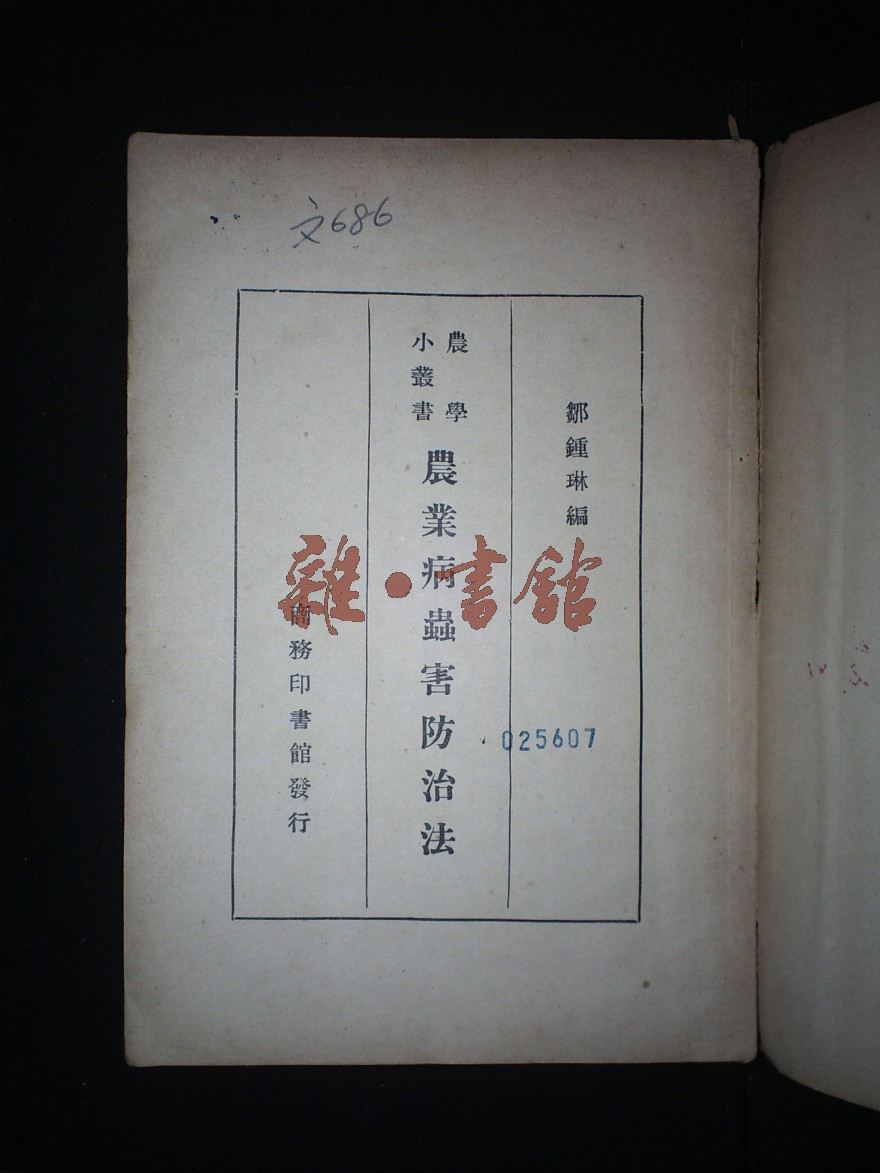 文686
鄒鍾琳編
農學
小叢書
農業病蟲害防治法
商務印書館發行
025607
雜·書館